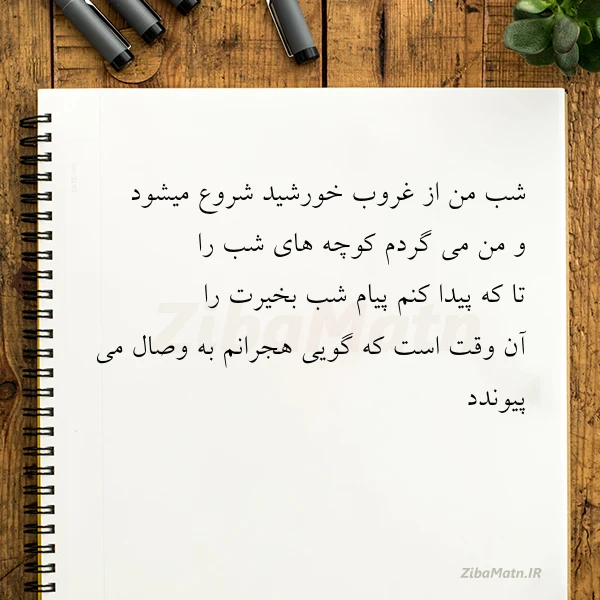 شب من از غروب خورشید شروع میشود
و من می گردم کوچه های شب را
تا که پیدا کنم پیام شب بخیرت را
آن وقت است که گویی هجرانم به وصال می
پیوندد
ZibaMatn
ZibaMatn.IR